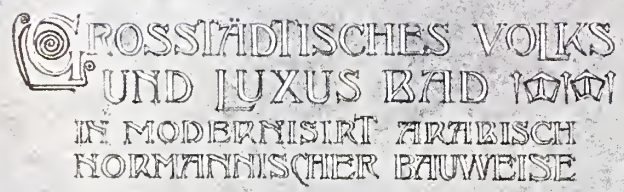 GROSSTÄDTISCHES VOLKS
UND LUXUS BAD
IN MODERNISIRT ARABISCH
NORMANNISCHER BAUWEISE